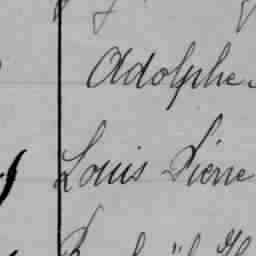 Adolphe
Louis Pierre